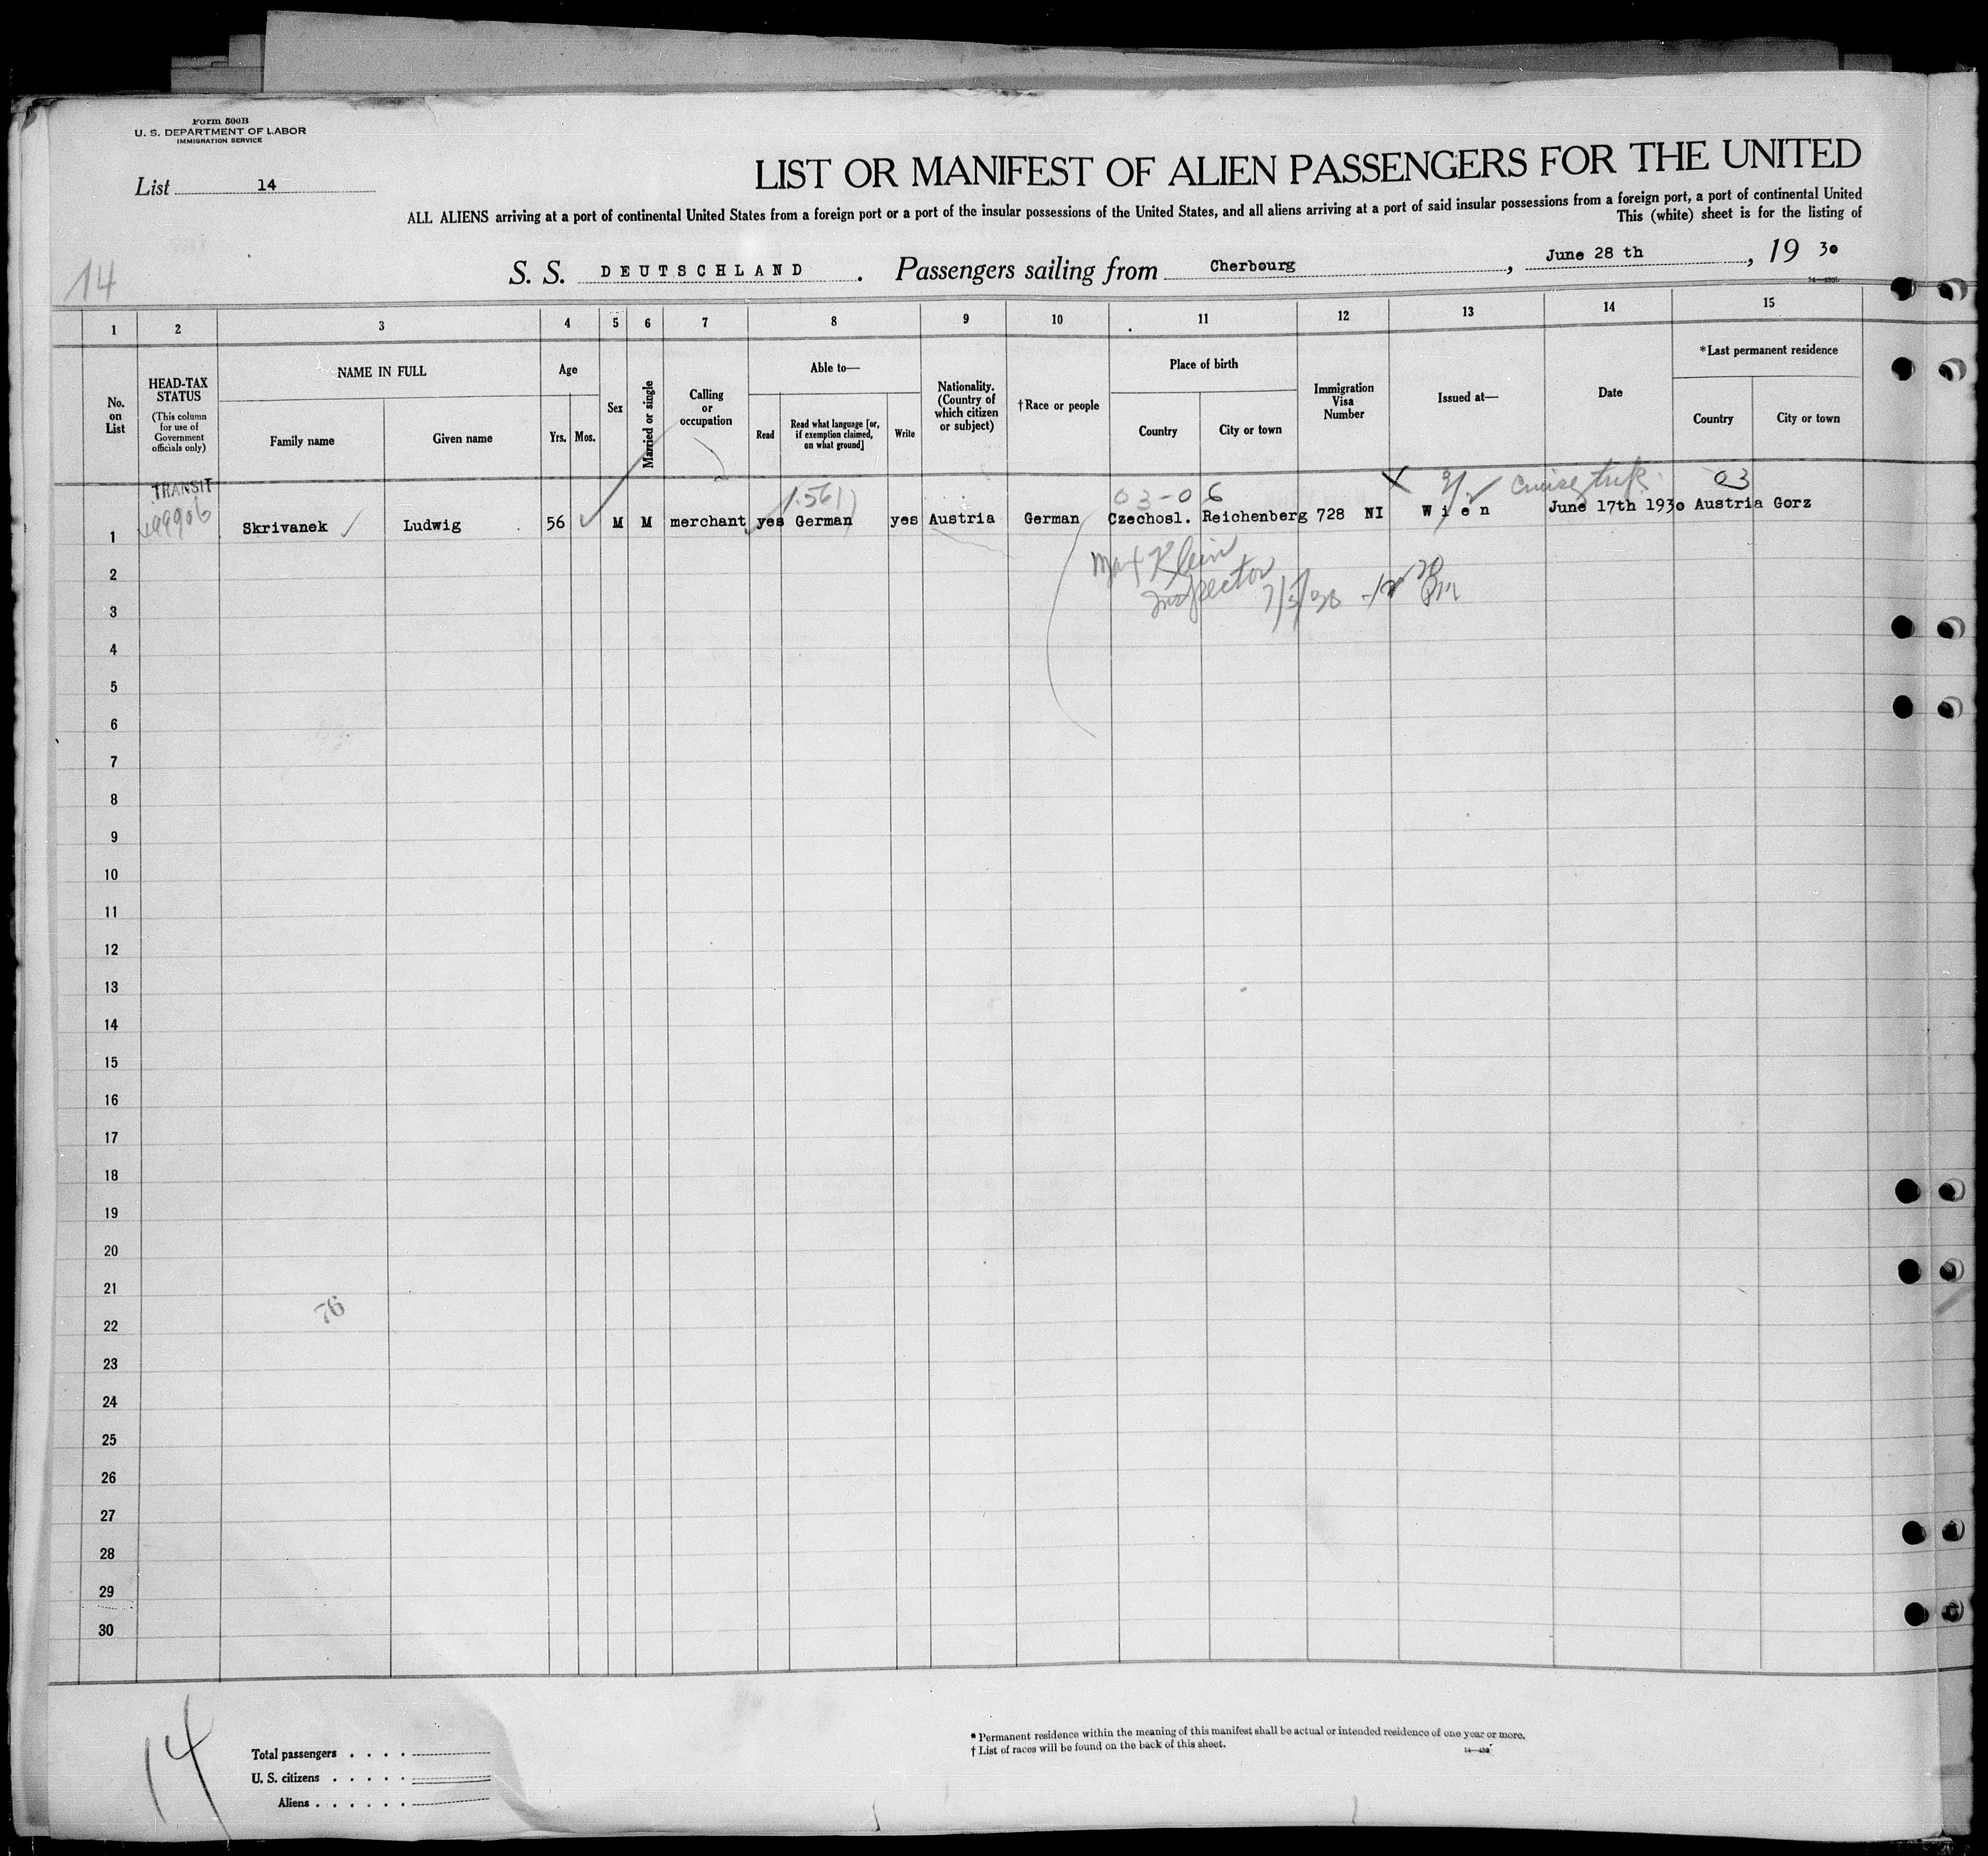 Form 500B
U. S. DEPARTMENT OF LABOR
IMMIGRATION SERVICE
List 14
LIST OR MANIFEST OF ALIEN PASSENGERS FOR THE UNITED
ALL ALIENS arriving at a port of continental United States from a foreign port or a port of the insular possessions of the United States, and all aliens arriving at a port of said insular possessions from a foreign port, a port of continental United
This (white) sheet is for the listing of
14
S. S. DEUTSCHLAND. Passengers sailing from Cherbourg, June 28 th, 19 30
1 2 3 4 5 6 7 8 9 10 11 12 13 14 15
No. on List
HEAD-TAX STATUS
(This column for use of Government officials only)
NAME IN FULL
Family name
Given name
Age
Yrs. Mos.
Sex
Married or single
Calling or occupation
Able to—
Read
Read what language [or, if exemption claimed, on what ground]
Write
Nationality. (Country of which citizen or subject)
†Race or people
Place of birth
Country
City or town
Immigration Visa Number
Issued at—
Date
*Last permanent residence
Country
City or town
TRANSIT
03-06
03
1 Skrivanek Ludwig 56 M M merchant yes German yes Austria German Czechosl. Reichenberg 728 NI Wien June 17th 1930 Austria Gorz
Max Klein
Inspector
2
3
4
5
6
7
8
9
10
11
12
13
14
15
16
17
18
19
20
21
76
22
23
24
25
26
27
28
29
30
14
Total passengers . . . .
U. S. citizens . . . . .
Aliens . . . . . .
* Permanent residence within the meaning of this manifest shall be actual or intended residence of one year or more.
† List of races will be found on the back of this sheet.